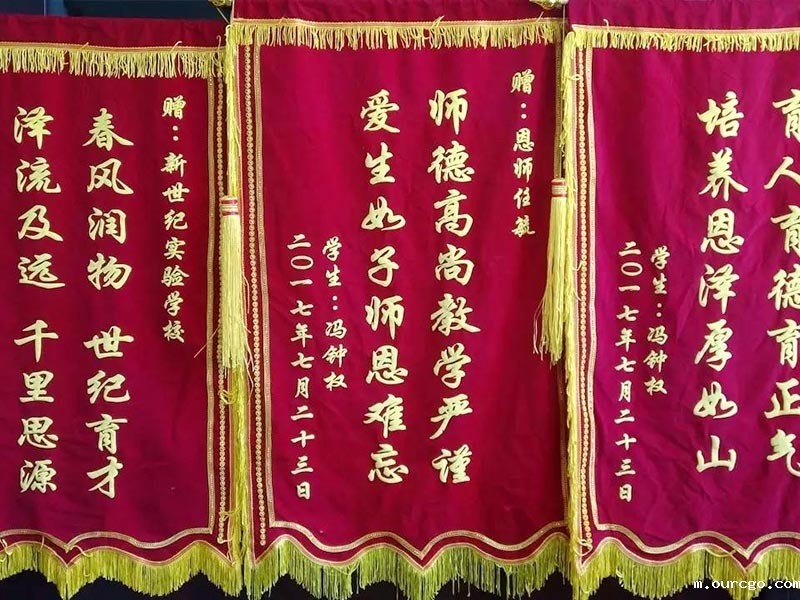 赠：新世纪实验学校
春风润物 世纪育才
泽流及远 千里思源
赠：恩师任毓
师德高尚教学严谨
爱生如子师恩难忘
学生：冯钟权
二〇一七年七月二十三日
育人育德育正气
培养恩泽厚如山
学生：冯钟权
二〇一七年七月二十三日
m.ourcgo.com